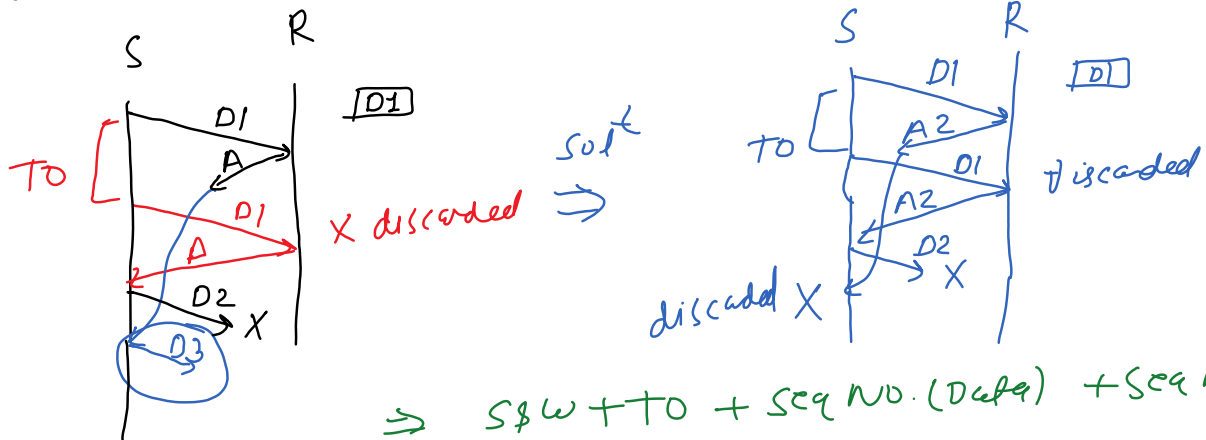 S R
D1
D1
A
TO
D1
X discarded
A
D2
X
D3
solt
⇒
S R
D1
D1
A2
TO
D1
discarded
A2
D2
X
discaded X
⇒ S&W + TO + Seq NO. (Data) + Seq